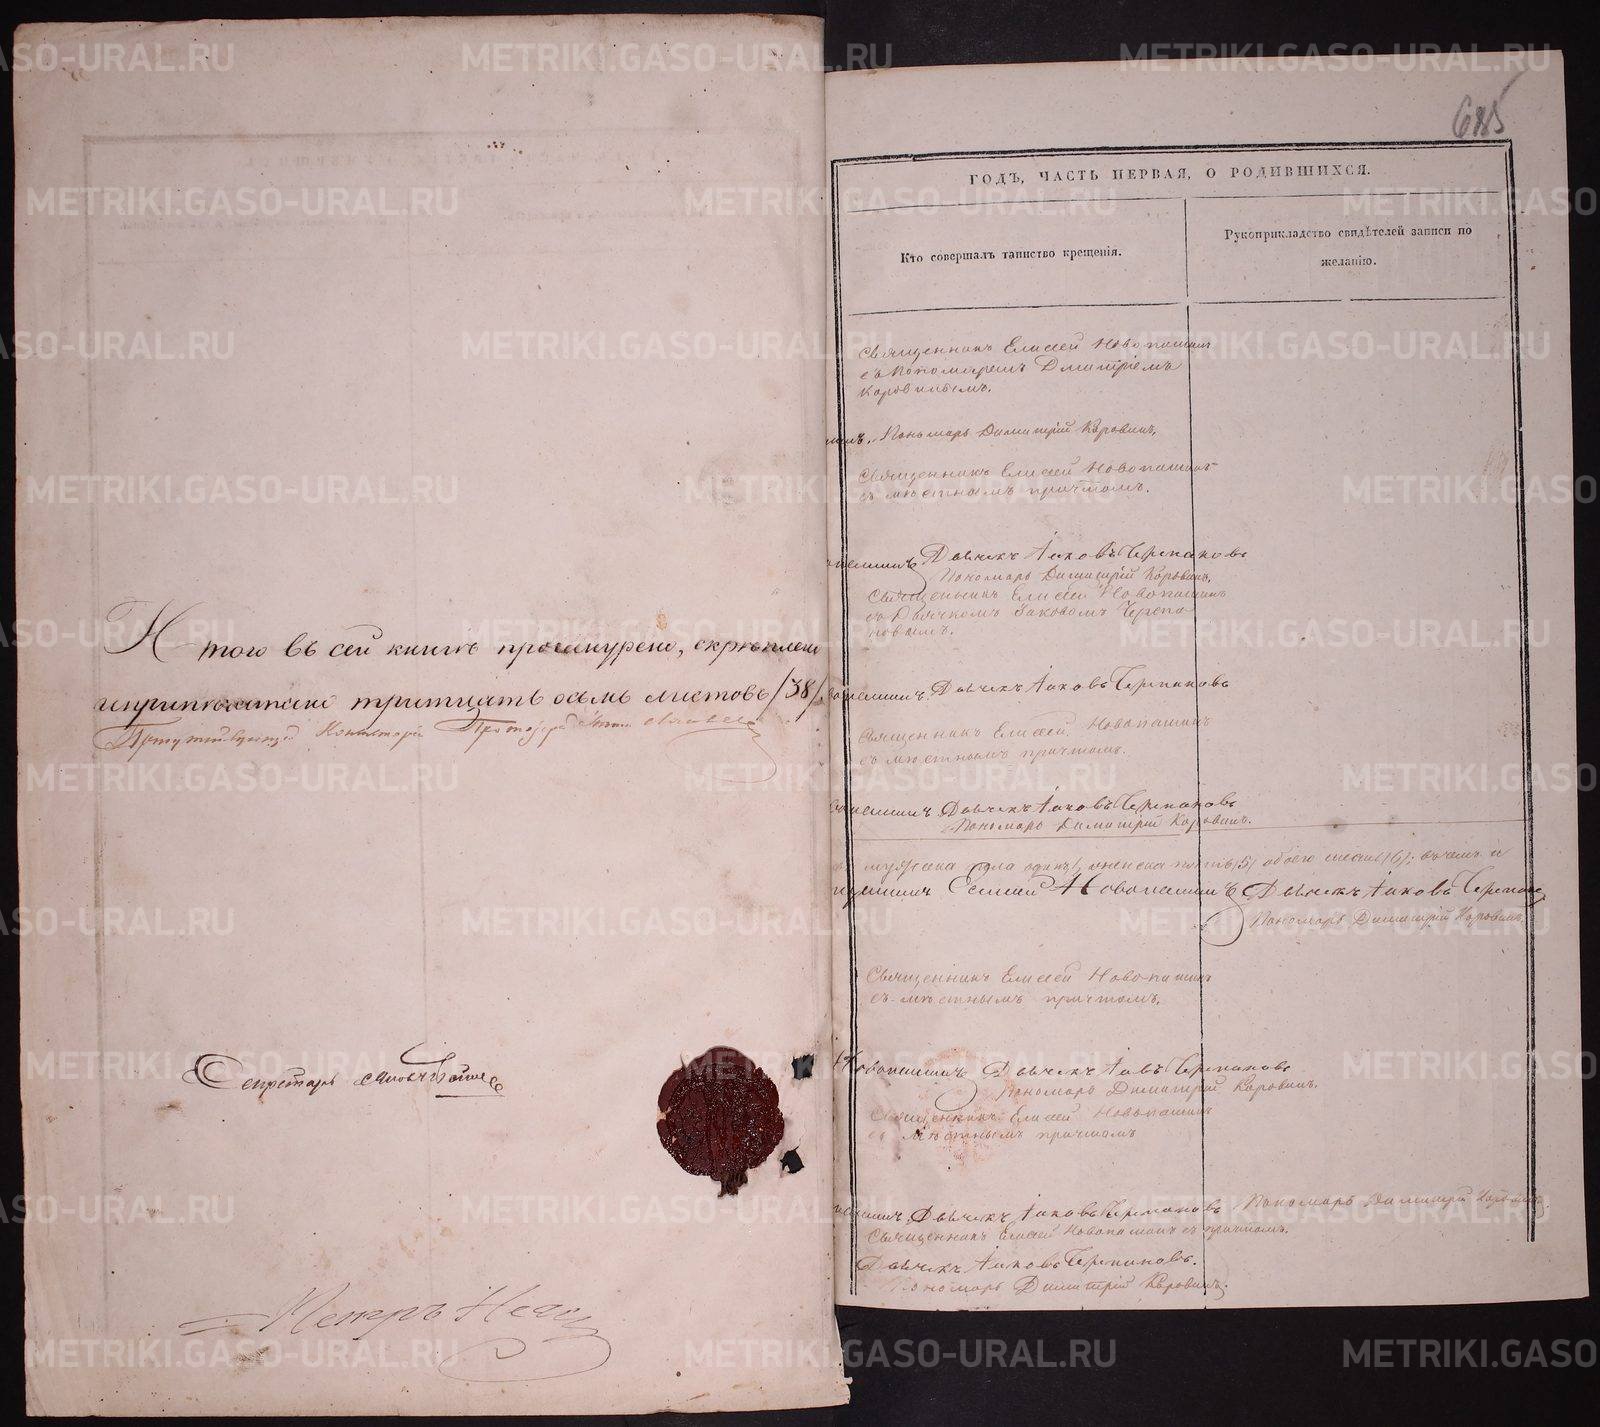 Итого въ сей книгѣ прошнурено, скрѣплено
и припечатано тритцать осьмь листовъ /38/
Присутствующій Консисторіи Протоіерей
Секретарь
685
ГОДЪ, ЧАСТЬ ПЕРВАЯ, О РОДИВШИХСЯ.
Кто совершалъ таинство крещенія.
Рукоприкладство свидѣтелей записи по
желанію.
Священникъ Елисей Новопашинъ
съ пономаремъ Димитріемъ
Коровинымъ.
Пономарь Димитрій Коровинъ.
Священникъ Елисей Новопашинъ
съ мѣстнымъ причтомъ.
Дьячекъ Іаковъ Черепановъ
Пономарь Димитрій Коровинъ.
Священникъ Елисей Новопашинъ
съ Дьячкомъ Іаковомъ Черепа
новымъ.
Дьячекъ Іаковъ Черепановъ
Священникъ Елисей Новопашинъ
съ мѣстнымъ причтомъ.
Дьячекъ Іаковъ Черепановъ
Пономарь Димитрій Коровинъ.
мужеска пола одинъ, женска пять /5/ обоего шесть /6/: въ чемъ и
Елисей Новопашинъ Дьячекъ Іаковъ Черепановъ
Пономарь Димитрій Коровинъ.
Священникъ Елисей Новопашинъ
съ мѣстнымъ причтомъ.
Новопашинъ Дьячекъ Іаковъ Черепановъ
Пономарь Димитрій Коровинъ.
Священникъ Елисей Новопашинъ
съ мѣстнымъ причтомъ
Дьячекъ Іаковъ Черепановъ Пономарь Димитрій Коровинъ.
Священникъ Елисей Новопашинъ съ причтомъ.
Дьячекъ Іаковъ Черепановъ.
Пономарь Димитрій Коровинъ.
METRIKI.GASO-URAL.RU